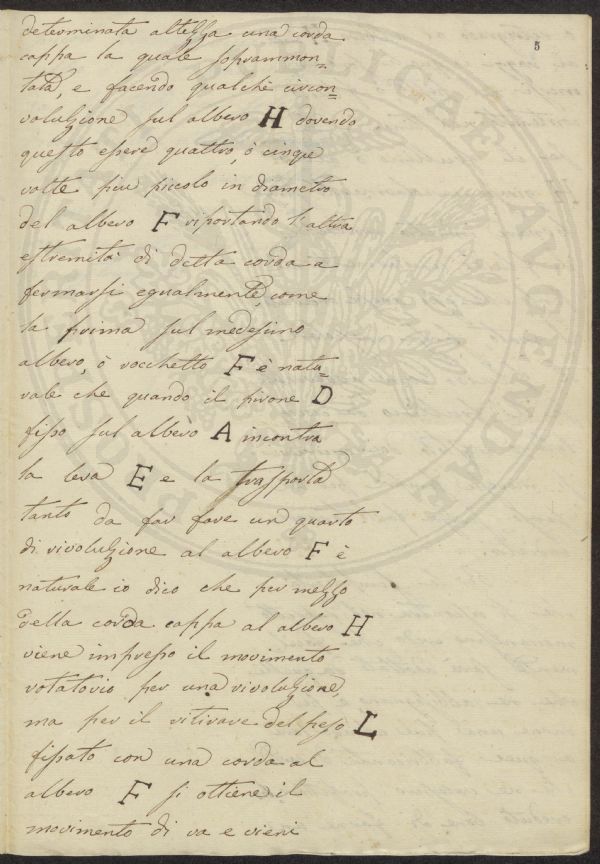 5
determinata altezza una corda
cappa la quale sopram̄mon=
tata, e facendo qualche circon=
voluzione sul albero H dovendo
questo essere quattro, ò cinque
volte piu piccolo in diametro
del albero F riportando l'altra
estremità di detta corda a
fermarsi egualmente, come
la prima sul medesimo
albero, ò rocchetto F è natu=
rale che quando il pirone D
fisso sul albero A incontra
la leva E e la trasporta
tanto da far fare un quarto
di rivoluzione al albero F è
naturale io dico che per mezzo
della corda cappa al albero H
viene impresso il movimento
rotatorio per una rivoluzione,
ma per il ritirare del peso L
fissato con una corda al
albero F si ottiene il
movimento di va e vieni